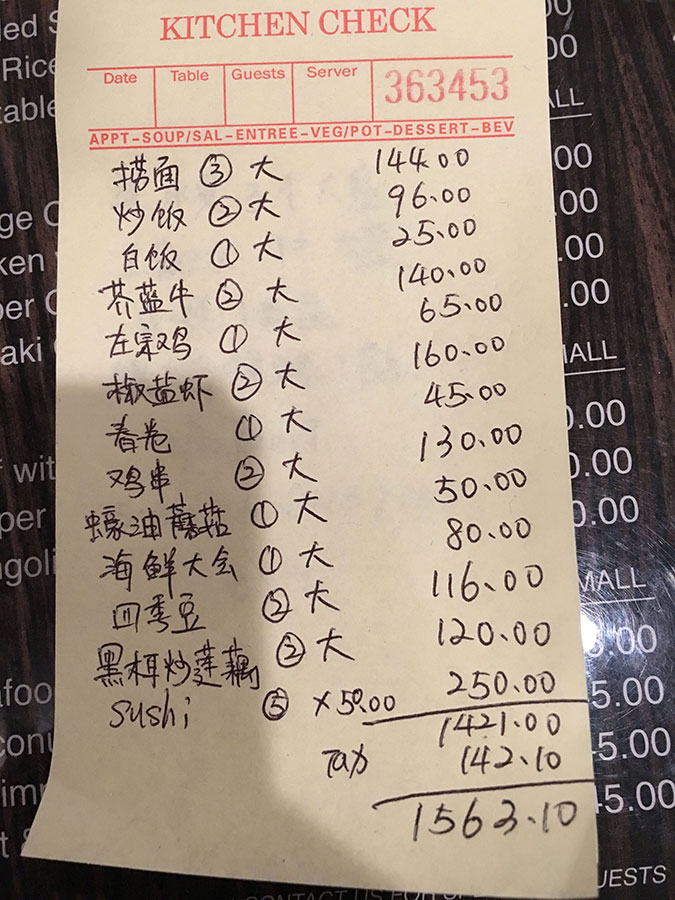 KITCHEN CHECK
Date Table Guests Server 363453
APPT-SOUP/SAL-ENTREE-VEG/POT-DESSERT-BEV
捞面 ③ 大 144.00
炒饭 ② 大 96.00
白饭 ① 大 25.00
芥蓝牛 ② 大 140.00
左宗鸡 ① 大 65.00
椒盐虾 ② 大 160.00
春卷 ① 大 45.00
鸡串 ② 大 130.00
蠔油蘑菇 ① 大 50.00
海鲜大会 ① 大 80.00
四季豆 ② 大 116.00
黑木耳炒莲藕 ② 大 120.00
Sushi ⑤ x 50.00 250.00
1421.00
Tax 142.10
1563.10
Rice
.00
.00
.00
.00
.00
MALL
.00
.00
.00
MALL
.00
5.00
5.00
45.00
UESTS